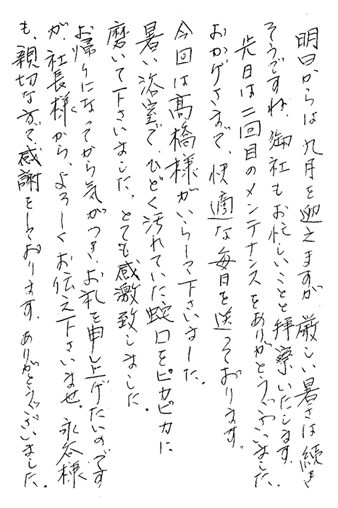 明日からは九月を迎えますが、厳しい暑さは続き
そうですね。御社もお忙しいことと拝察いたします。
先日は二回目のメンテナンスをありがとうございました。
おかげさまで、快適な毎日を送っております。
今回は髙橋様がいらして下さいました。
暑い浴室で、ひどく汚れていた蛇口をピカピカに
磨いて下さいました。とても感激致しました。
お帰りになってから気がつき、お礼を申し上げたいのです
が、社長様から、よろしくお伝え下さいませ。永谷様
も、親切な方で感謝をしております。ありがとうございました。